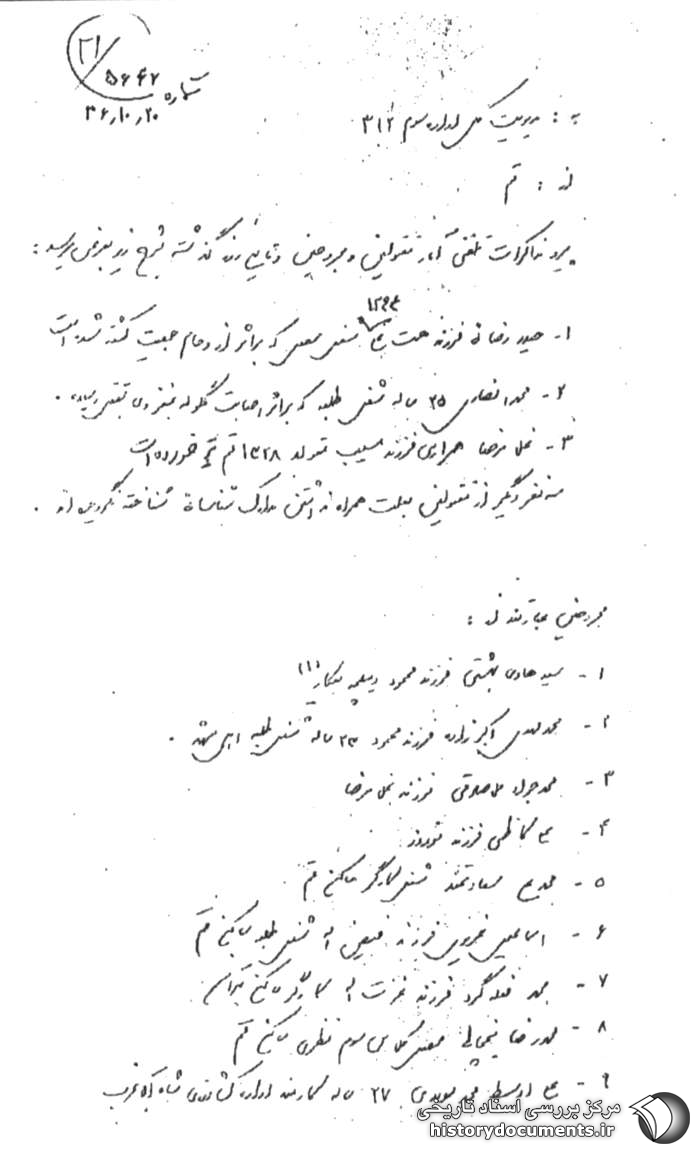 ۲۱/۵۶۴۲
شماره
۳۶/۱۰/۲۰
به : مدیریت کل اداره سوم ۳۱۲
از : قم
پیرو مذاکرات تلفنی آمار مقتولین و مجروحین وقایع روز گذشته بشرح زیر بعرض میرسد :
۱۳۴۴
۱- حیدر رضائی فرزند حمت شغل محصل که براثر ازدحام جمعیت کشته شده است
۲- محمد انصاری ۲۵ ساله شغل طلبه که براثر اصابت گلوله بقتل رسیده .
۳- غلامرضا همراهی فرزند مسیب متولد ۱۳۲۸ قم تیر خورده است
سه نفر دیگر از مقتولین بعلت همراه نداشتن مدارک شناسائی شناخته نگردیده اند .
مجروحین عبارتند از :
۱- سید هادی بهشتی فرزند محمود دیپلمه بیکار (۱)
۲- محمد مهدی اکبرزاده فرزند محمود ۲۳ ساله شغل طلبه اهل مشهد .
۳- محمد جواد صادقی فرزند غلامرضا
۴- علی کاظمی فرزند نوروز
۵- سعادتمند شغل کارگر ساکن قم
۶- اسماعیل فرزند فیض اله شغل طلبه ساکن قم
۷- محمد فرزند عزت اله کارگر ساکن تهران
۸- محمدرضا محصل کلاس سوم نظری ساکن قم
۹- علی ۲۷ ساله کارمند اداره کشاورزی شاه آباد غرب
مرکز بررسی اسناد تاریخی
historydocuments.ir